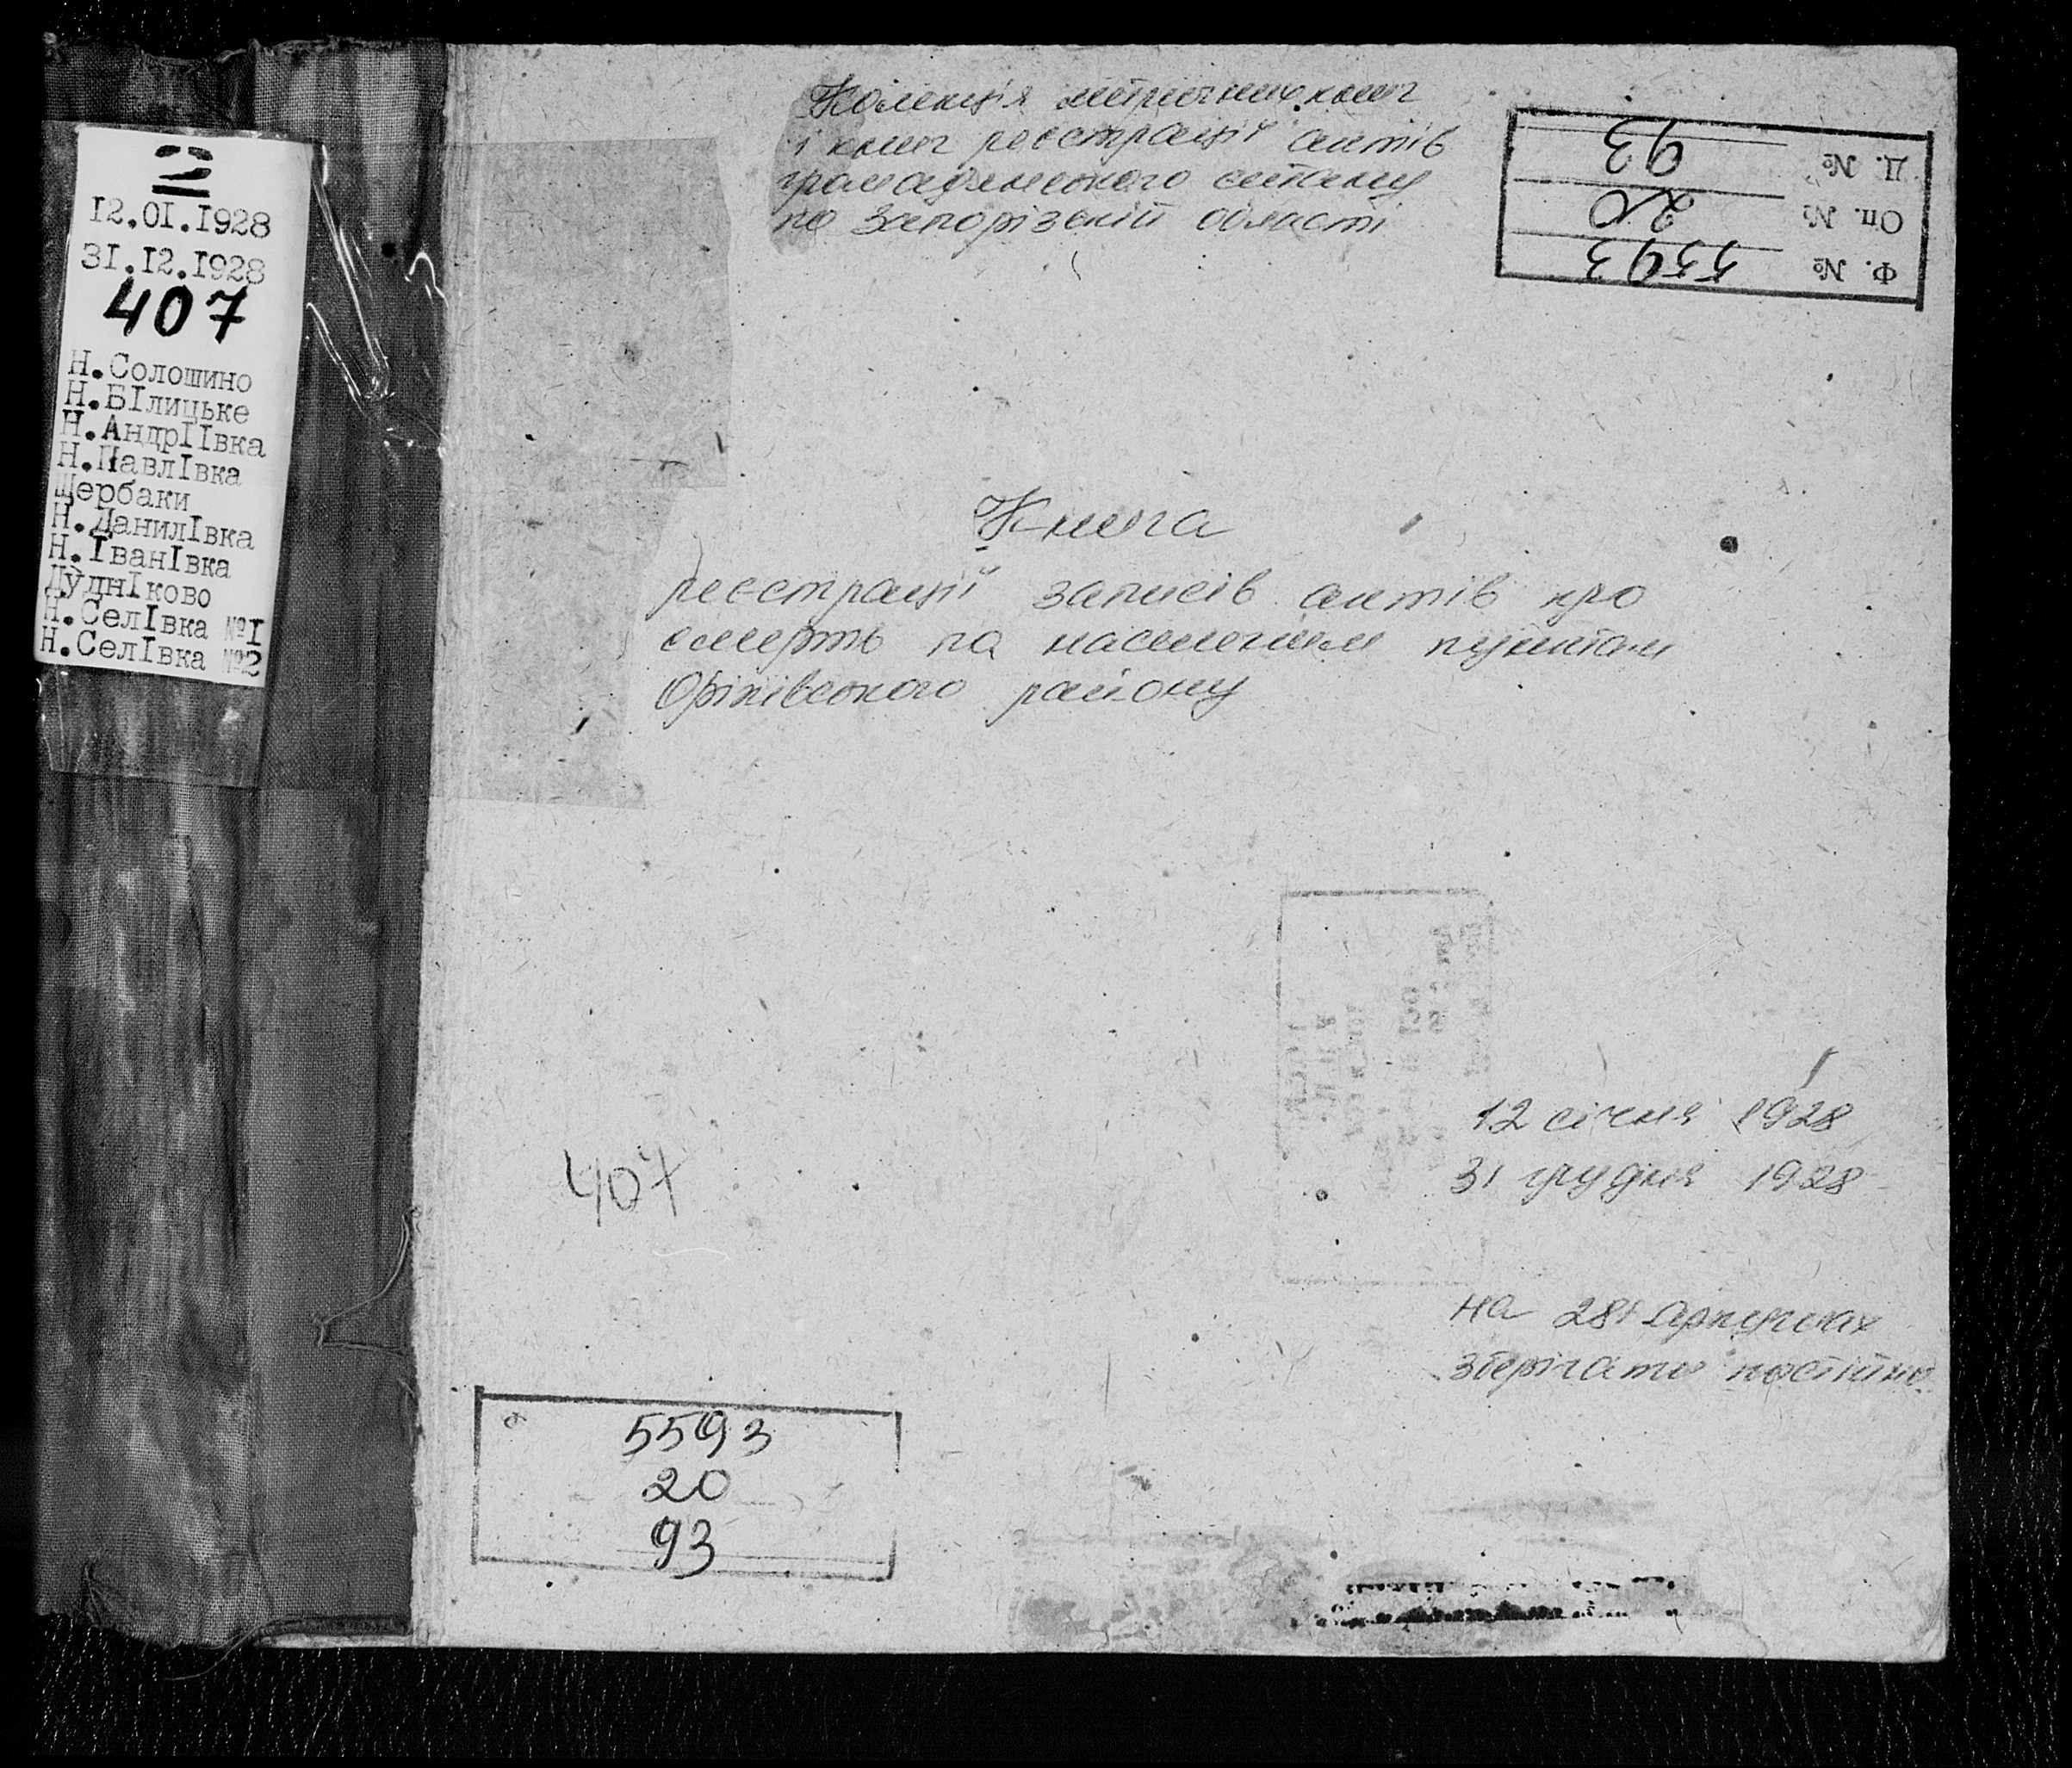 2
12.01.1928
31.12.1928
407
Н.Солошино
Н.БІлицьке
Н.АндрІІвка
Н.ПавлІвка
Щербаки
Н.ДанилІвка
Н.ІванІвка
ДуднІково
Н.СелІвка №1
Н.СелІвка №2
Колекція метричних книг
і книг реєстрації актів
громадянського стану
по Запорізькій області
Д. № 93
Оп. № 20
Ф. № 5593
Книга
реєстрації записів актів про
смерть по населеним пунктам
Оріхівського району
407
12 січня 1928
31 грудня 1928
на 281 аркушах
зберігати постійно
5593
20
93